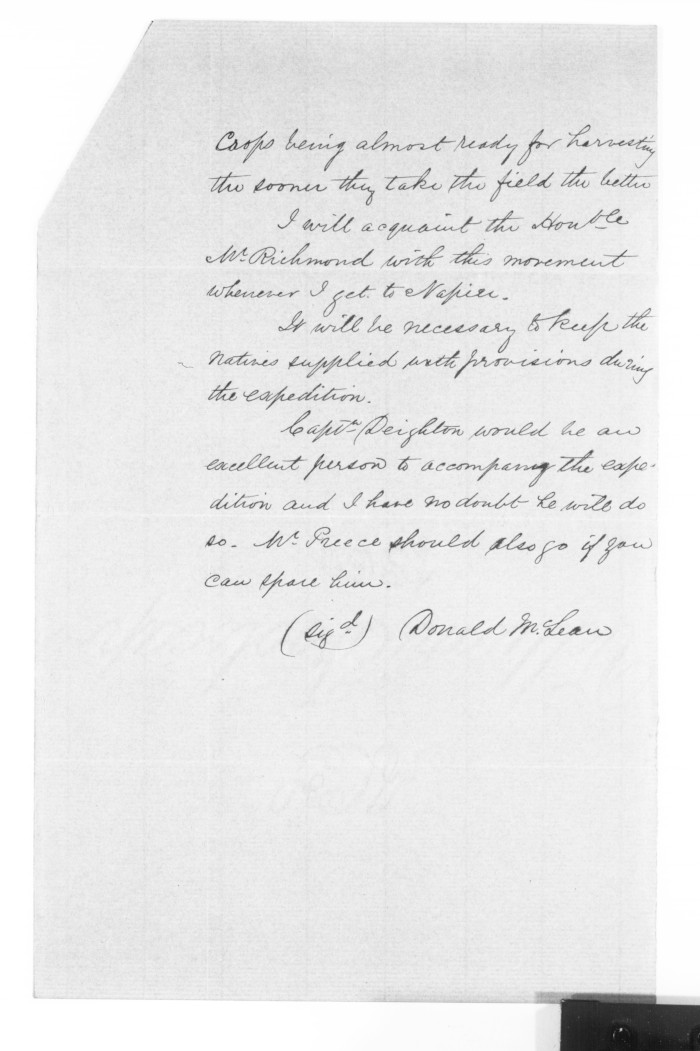 Crops being almost ready for harvesting
the sooner they take the field the better
I will acquaint the Honble
Mr. Richmond with this movement
whenever I get to Napier.
It will be necessary to keep the
natives supplied with provisions during
the expedition.
Captn Deighton would be an
excellent person to accompany the expe-
dition and I have no doubt he will do
so. Mr. Preece should also go if you
can spare him.
(sigd.) Donald McLean